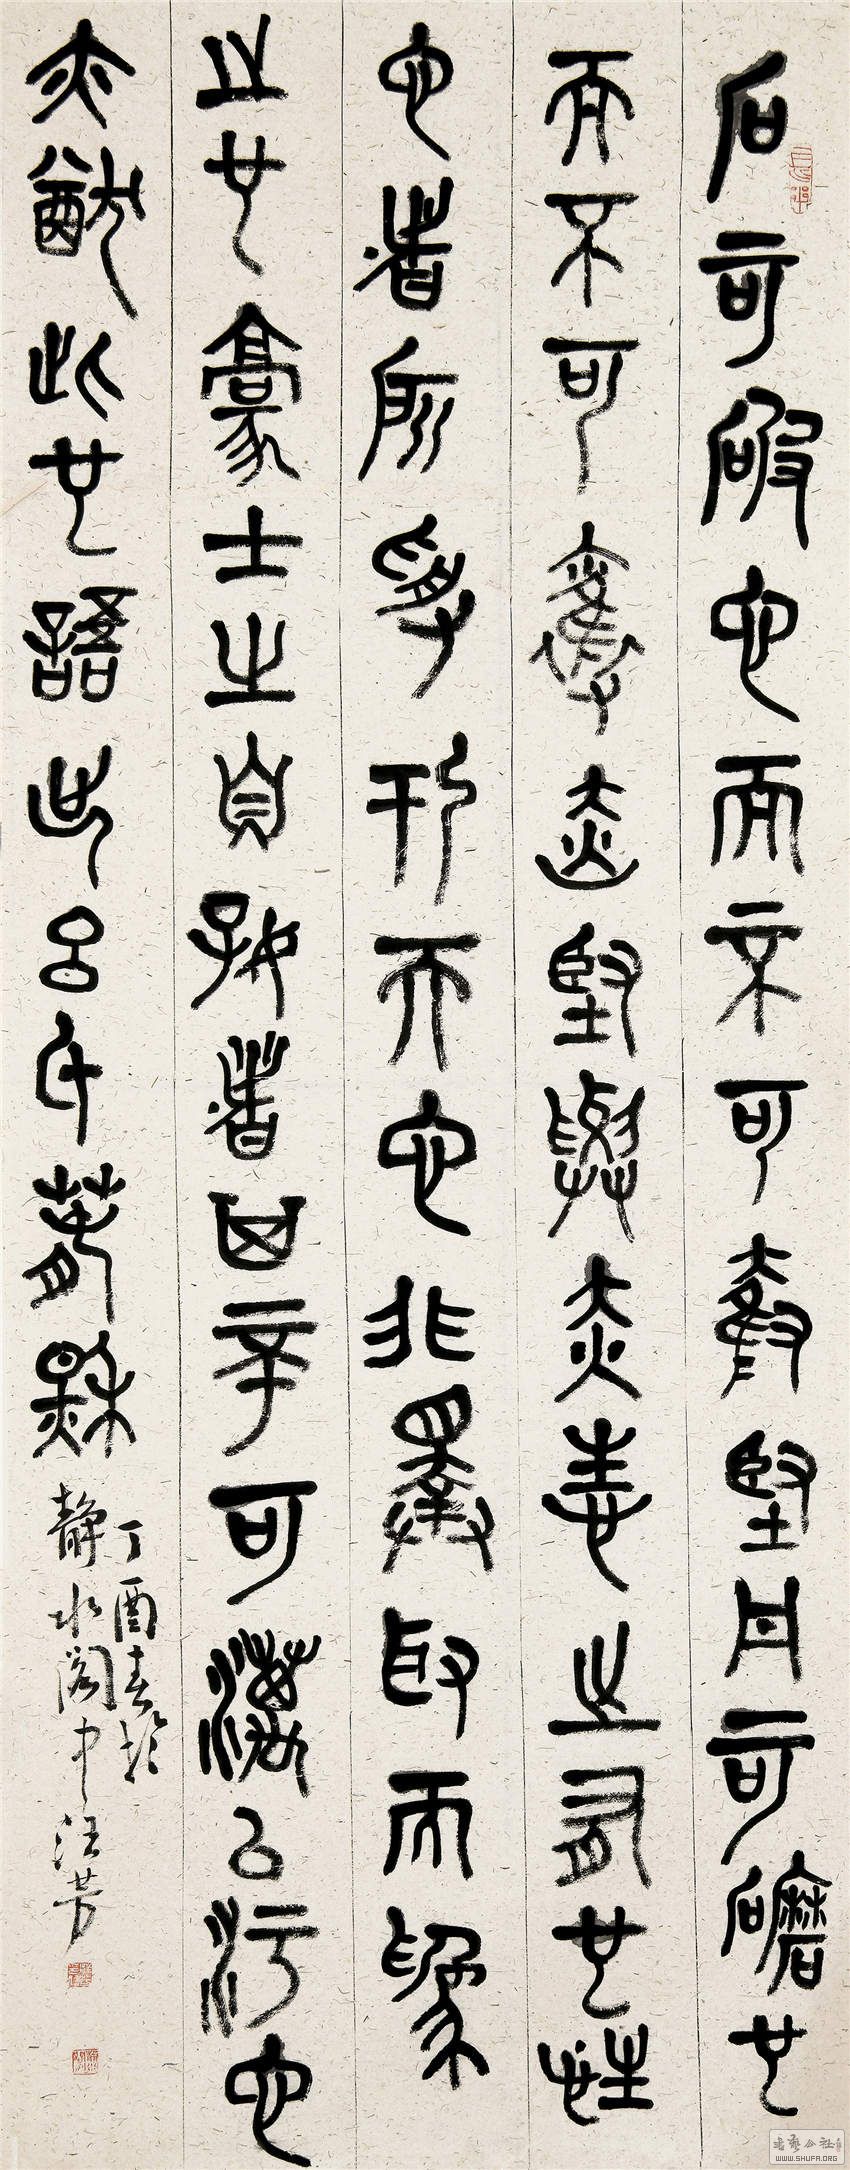 石可破也而不可奪堅丹可磨也
而不可奪赤堅與赤性之有也性
也者所受于天也非擇取而為
之也豪士之自好者其不可漫以污也
亦猶此也語出呂氏春秋
丁酉春於
靜水閣中汪芳
WWW.SHUFA.ORG